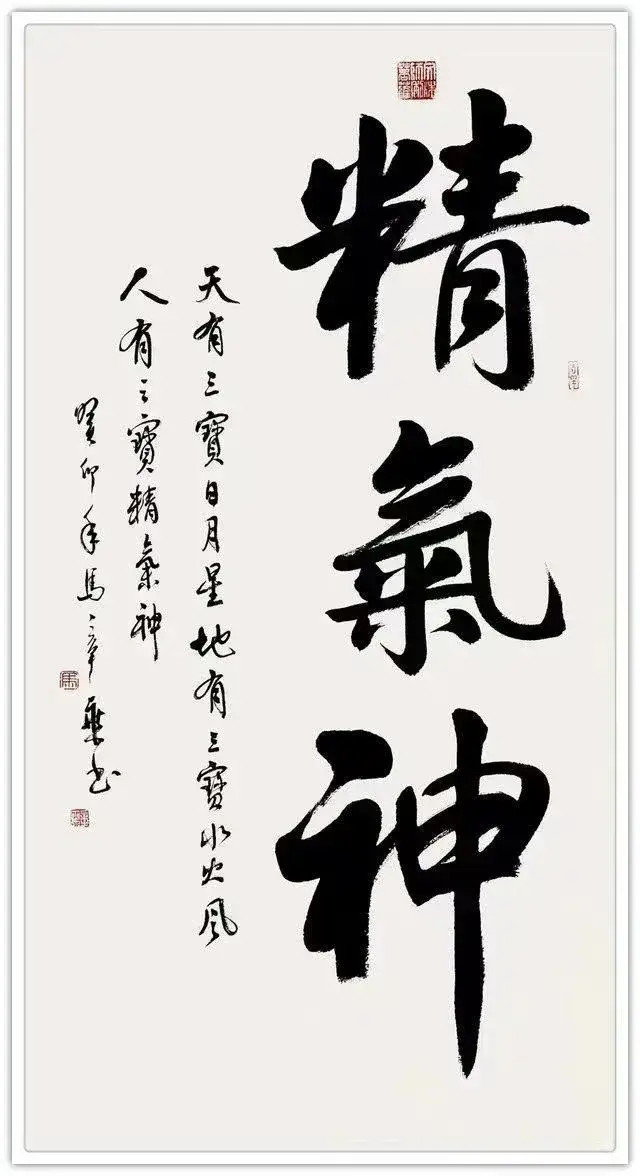 精氣神
天有三寶日月星地有三寶水火風
人有三寶精氣神
癸卯年馬三章藥書